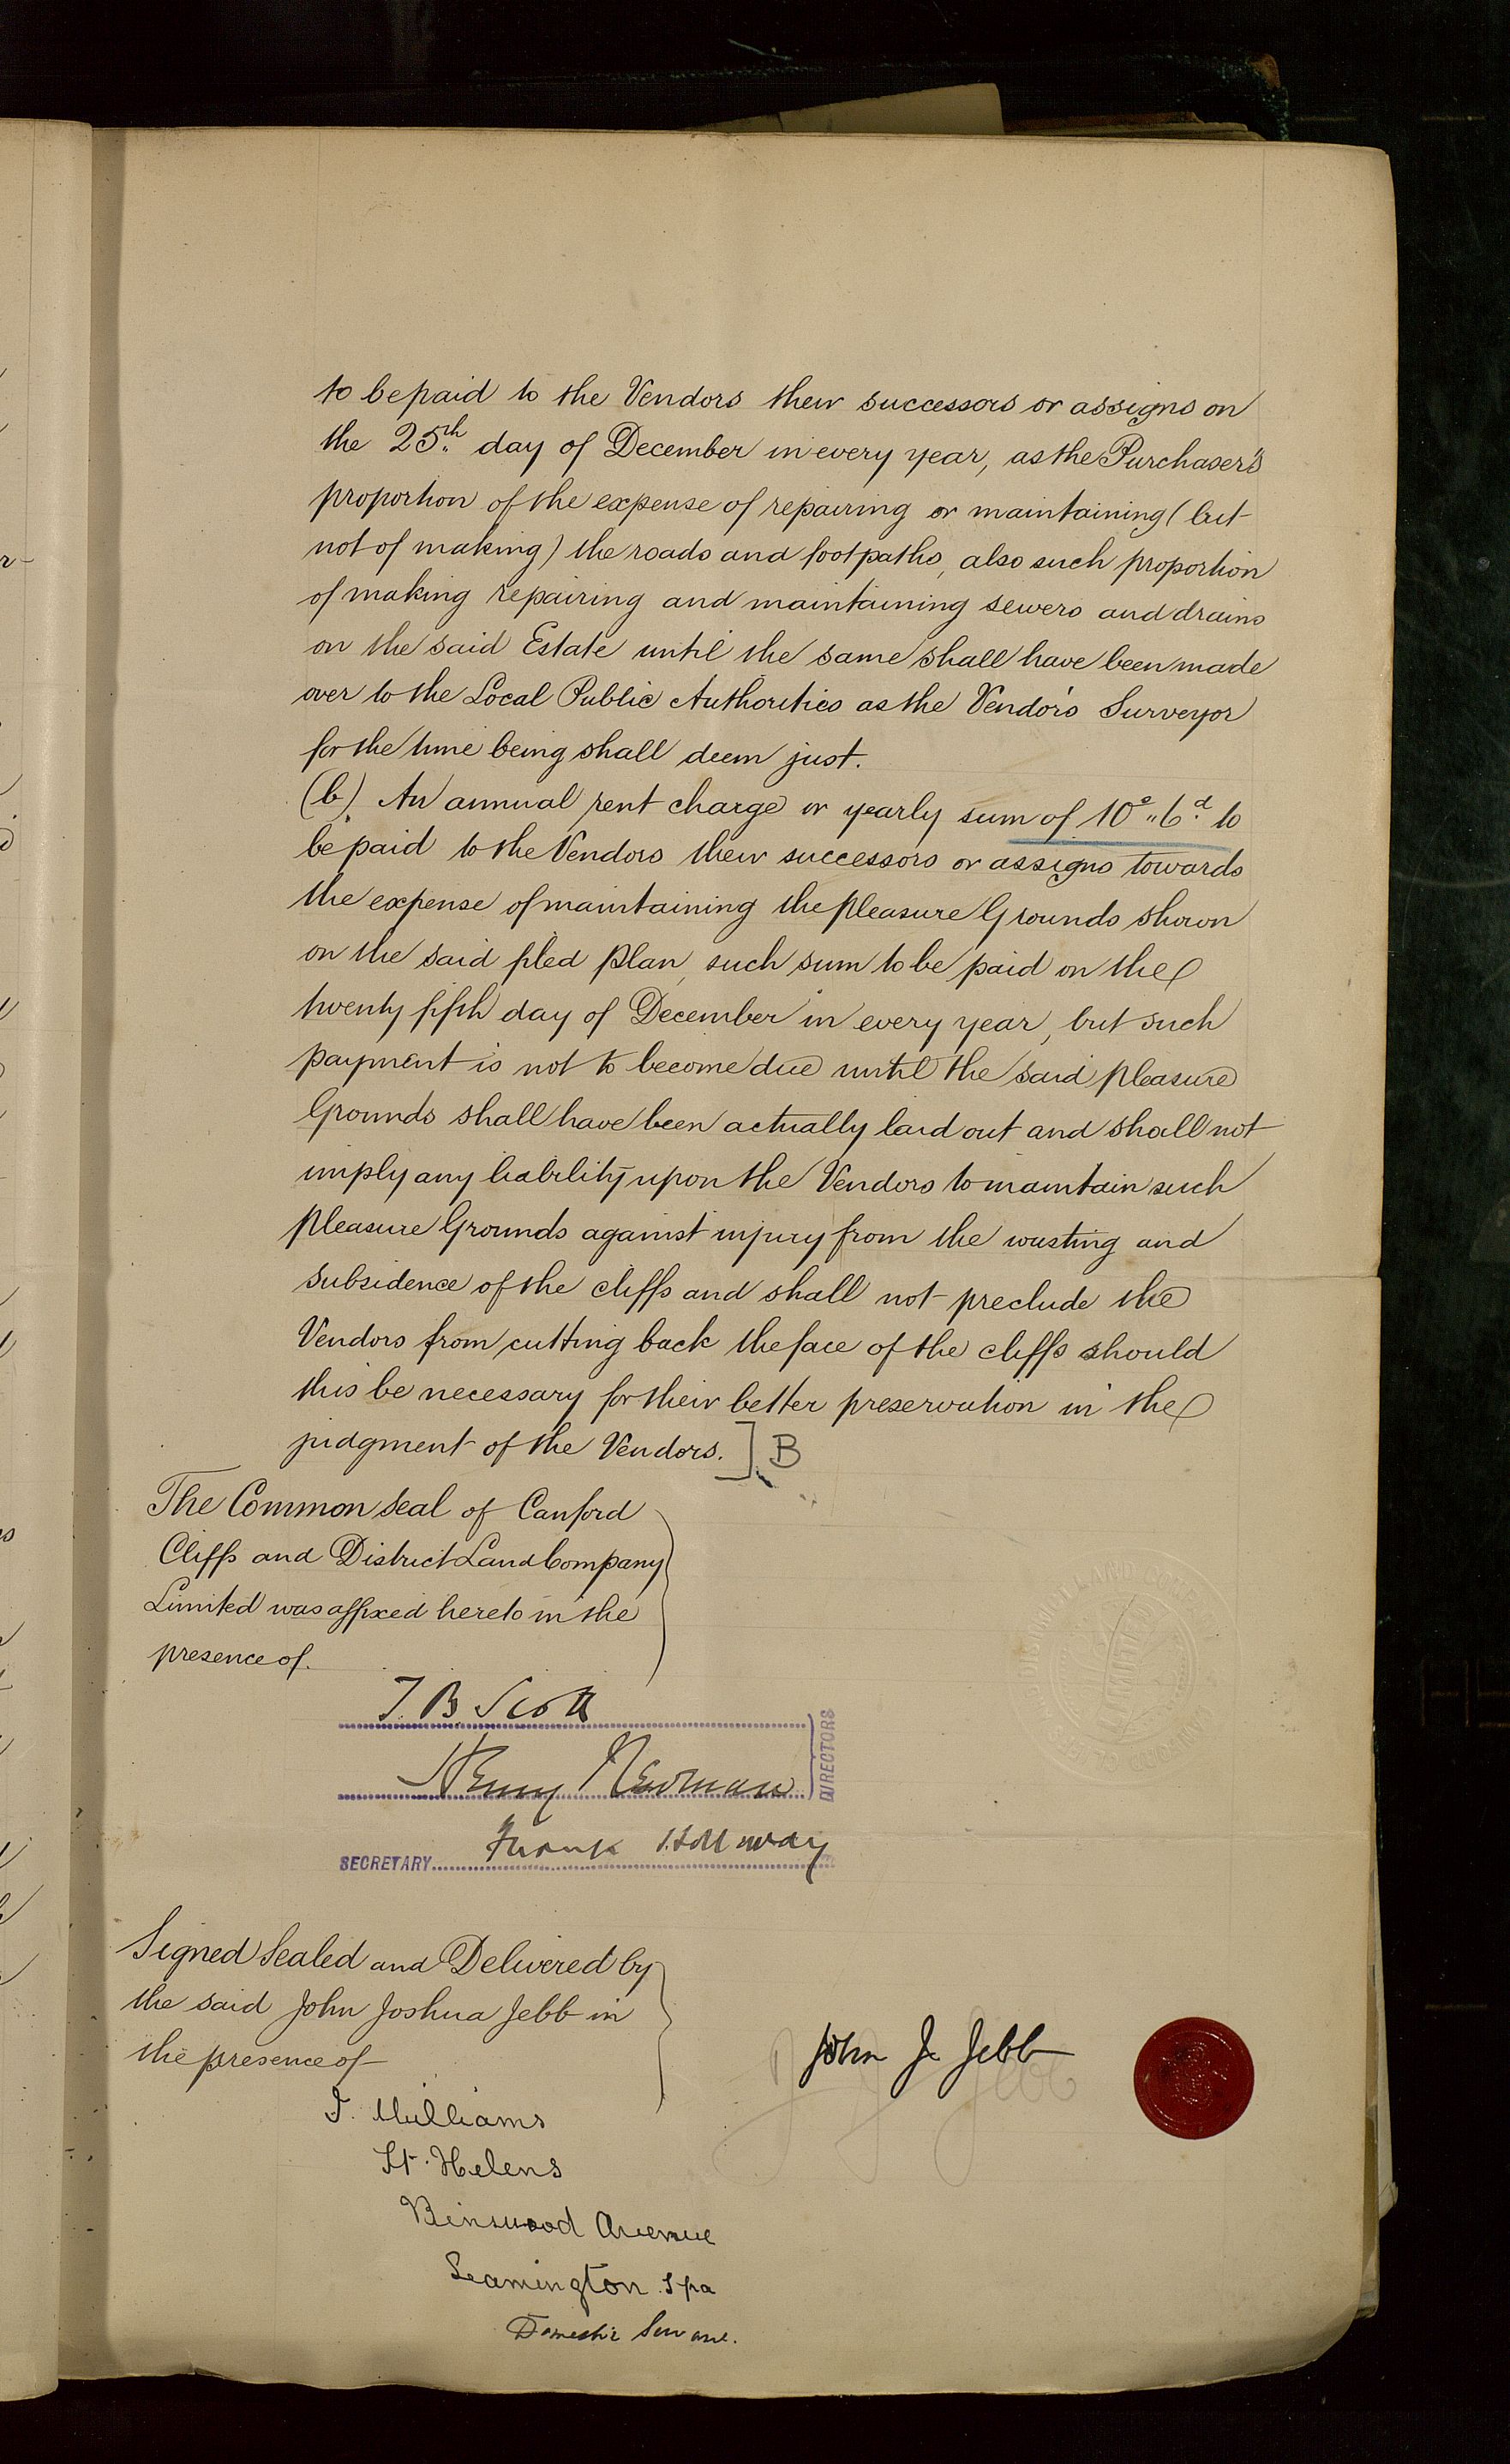 to be paid to the Vendors their successors or assigns on
the 25th day of December in every year, as the Purchaser's
proportion of the expense of repairing or maintaining (but
not of making) the roads and footpaths, also such proportion
of making repairing and maintaining sewers and drains
on the said Estate until the same shall have been made
over to the Local Public Authorities as the Vendor's Surveyor
for the time being shall deem just.
(b). An annual rent charge or yearly sum of 10s "6d. to
be paid to the Vendors their successors or assigns towards
the expense of maintaining the pleasure Grounds shown
on the said filed plan, such sum to be paid on the
twenty fifth day of December in every year, but such
payment is not to become due until the said pleasure
Grounds shall have been actually laid out and shall not
imply any liability upon the Vendors to maintain such
pleasure Grounds against injury from the wasting and
subsidence of the cliffs and shall not preclude the
Vendors from cutting back the face of the cliffs should
this be necessary for their better preservation in the
judgment of the Vendors. ] B
The Common seal of Canford
Cliffs and District Land Company
Limited was affixed hereto in the
presence of.
T. B. Scott
Henry Newman
DIRECTORS
SECRETARY Frank Holloway
Signed Sealed and Delivered by
the said John Joshua Jebb in
the presence of
John J. Jebb
J. Williams
St. Helens
Binswood Avenue
Leamington Spa
Domestic Servant.